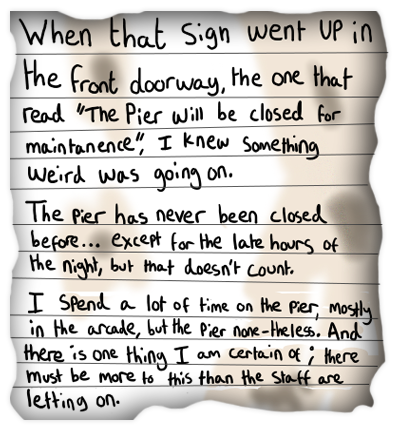 When that Sign went UP in
the front doorway, the one that
read "The Pier will be closed for
maintanence", I knew Something
weird was going on.
The Pier has never been closed
before... except for the late hours of
the night, but that doesn't count.
I Spend a lot of time on the Pier, mostly
in the arcade, but the Pier none-theless. And
there is one thing I am certain of ; there
must be more to this than the Staff are
letting on.